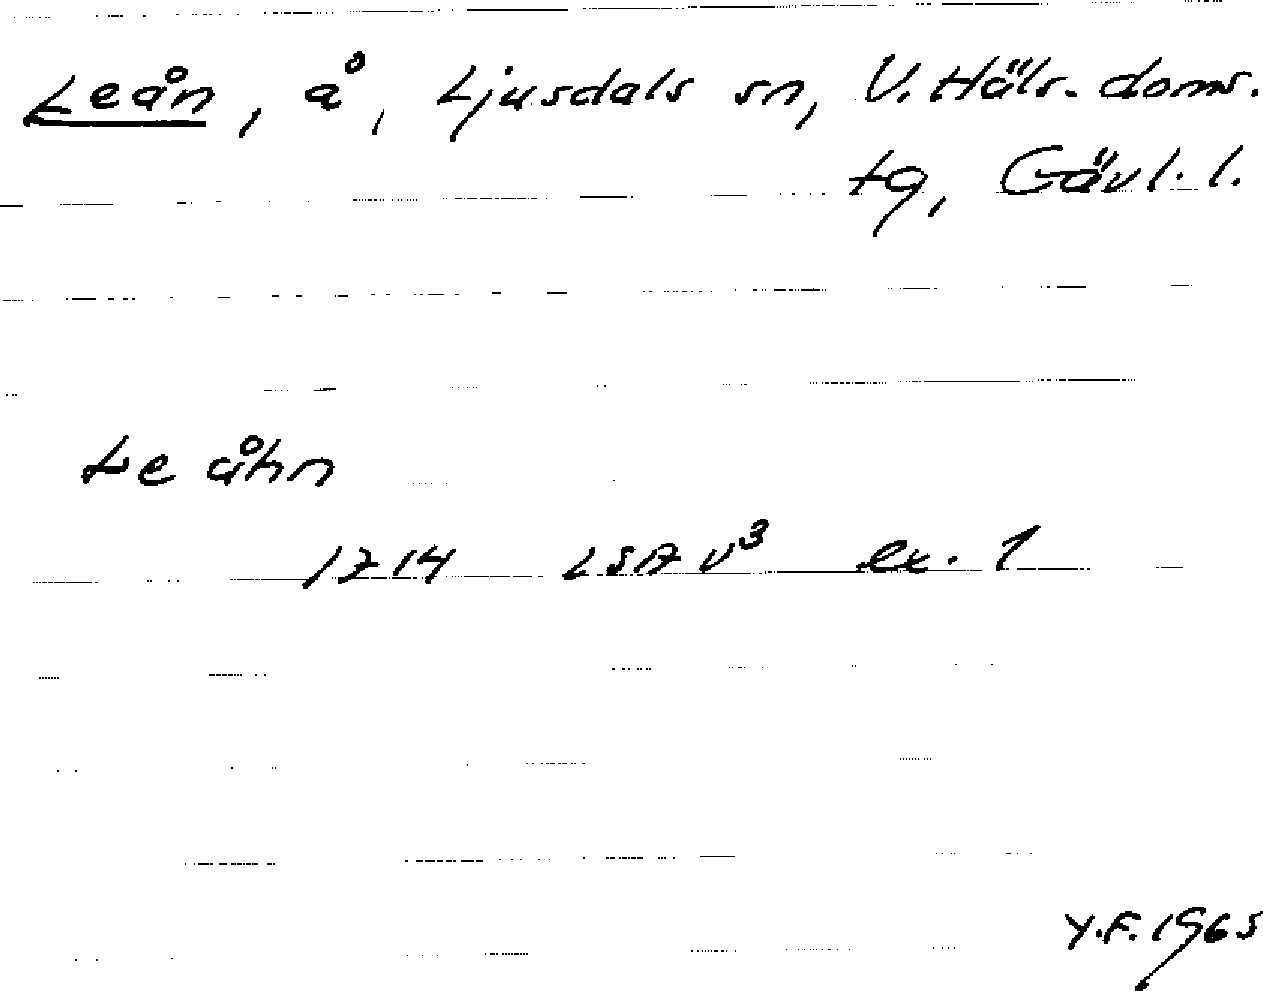 Leån, å, Ljusdals sn, V. Häls. doms.
tg, Gävl. l.
Le åhn
1714 LSA V³ ex. 1
Y.F. 1965